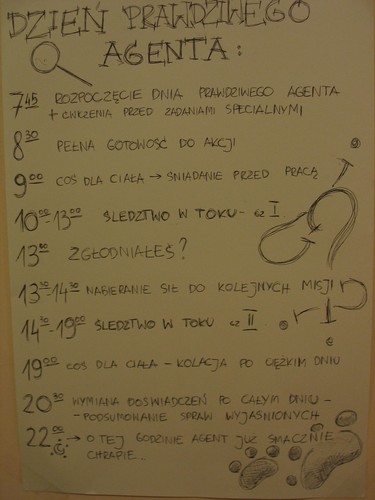 DZIEŃ PRAWDZIWEGO
AGENTA:
7⁴⁵ ROZPOCZĘCIE DNIA PRAWDZIWEGO AGENTA
+ ĆWICZENIA PRZED ZADANIAMI SPECJALNYMI
8³⁰ PEŁNA GOTOWOŚĆ DO AKCJI
9⁰⁰ COŚ DLA CIAŁA → ŚNIADANIE PRZED PRACĄ
10⁰⁰-13⁰⁰ ŚLEDZTWO W TOKU - cz I
13⁰⁰ ZGŁODNIAŁEŚ?
13³⁰-14³⁰ NABIERANIE SIŁ DO KOLEJNYCH MISJI
14³⁰-19⁰⁰ ŚLEDZTWO W TOKU cz II
19⁰⁰ COŚ DLA CIAŁA - KOLACJA PO CIĘŻKIM DNIU
20³⁰ WYMIANA DOŚWIADCZEŃ PO CAŁYM DNIU -
- PODSUMOWANIE SPRAW WYJAŚNIONYCH
22⁰⁰ → O TEJ GODZINIE AGENT JUŻ SMACZNIE
CHRAPIE...